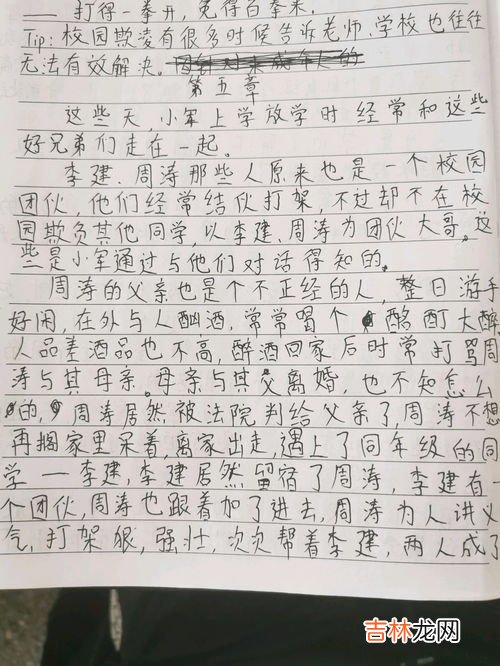 —— 打得一拳开，免得百拳来.
Tip：校园欺凌有很多时候告诉老师、学校也往往
无法有效解决。
第五章
这些天，小军上学放学时经常和这些
好兄弟们走在一起。
李建、周涛那些人原来也是一个校园
团伙，他们经常结伙打架，不过却不在校
园欺负其他同学，以李建、周涛为团伙大哥。这
些是小军通过与他们对话得知的。
周涛的父亲也是个不正经的人，整日游手
好闲，在外与人酗酒，常常喝个酩酊大醉
人品差酒品也不高，醉酒回家后时常打骂周
涛与其母亲。母亲与其父离婚，也不知怎么
的，周涛居然被法院判给父亲了，周涛不想
再搁家里呆着，离家出走，遇上了同年级的同
学——李建，李建居然留宿了周涛，李建有一
个团伙，周涛也跟着加了进去，周涛为人讲义
气，打架狠，强壮，次次帮着李建，两人成了
吉林龙网